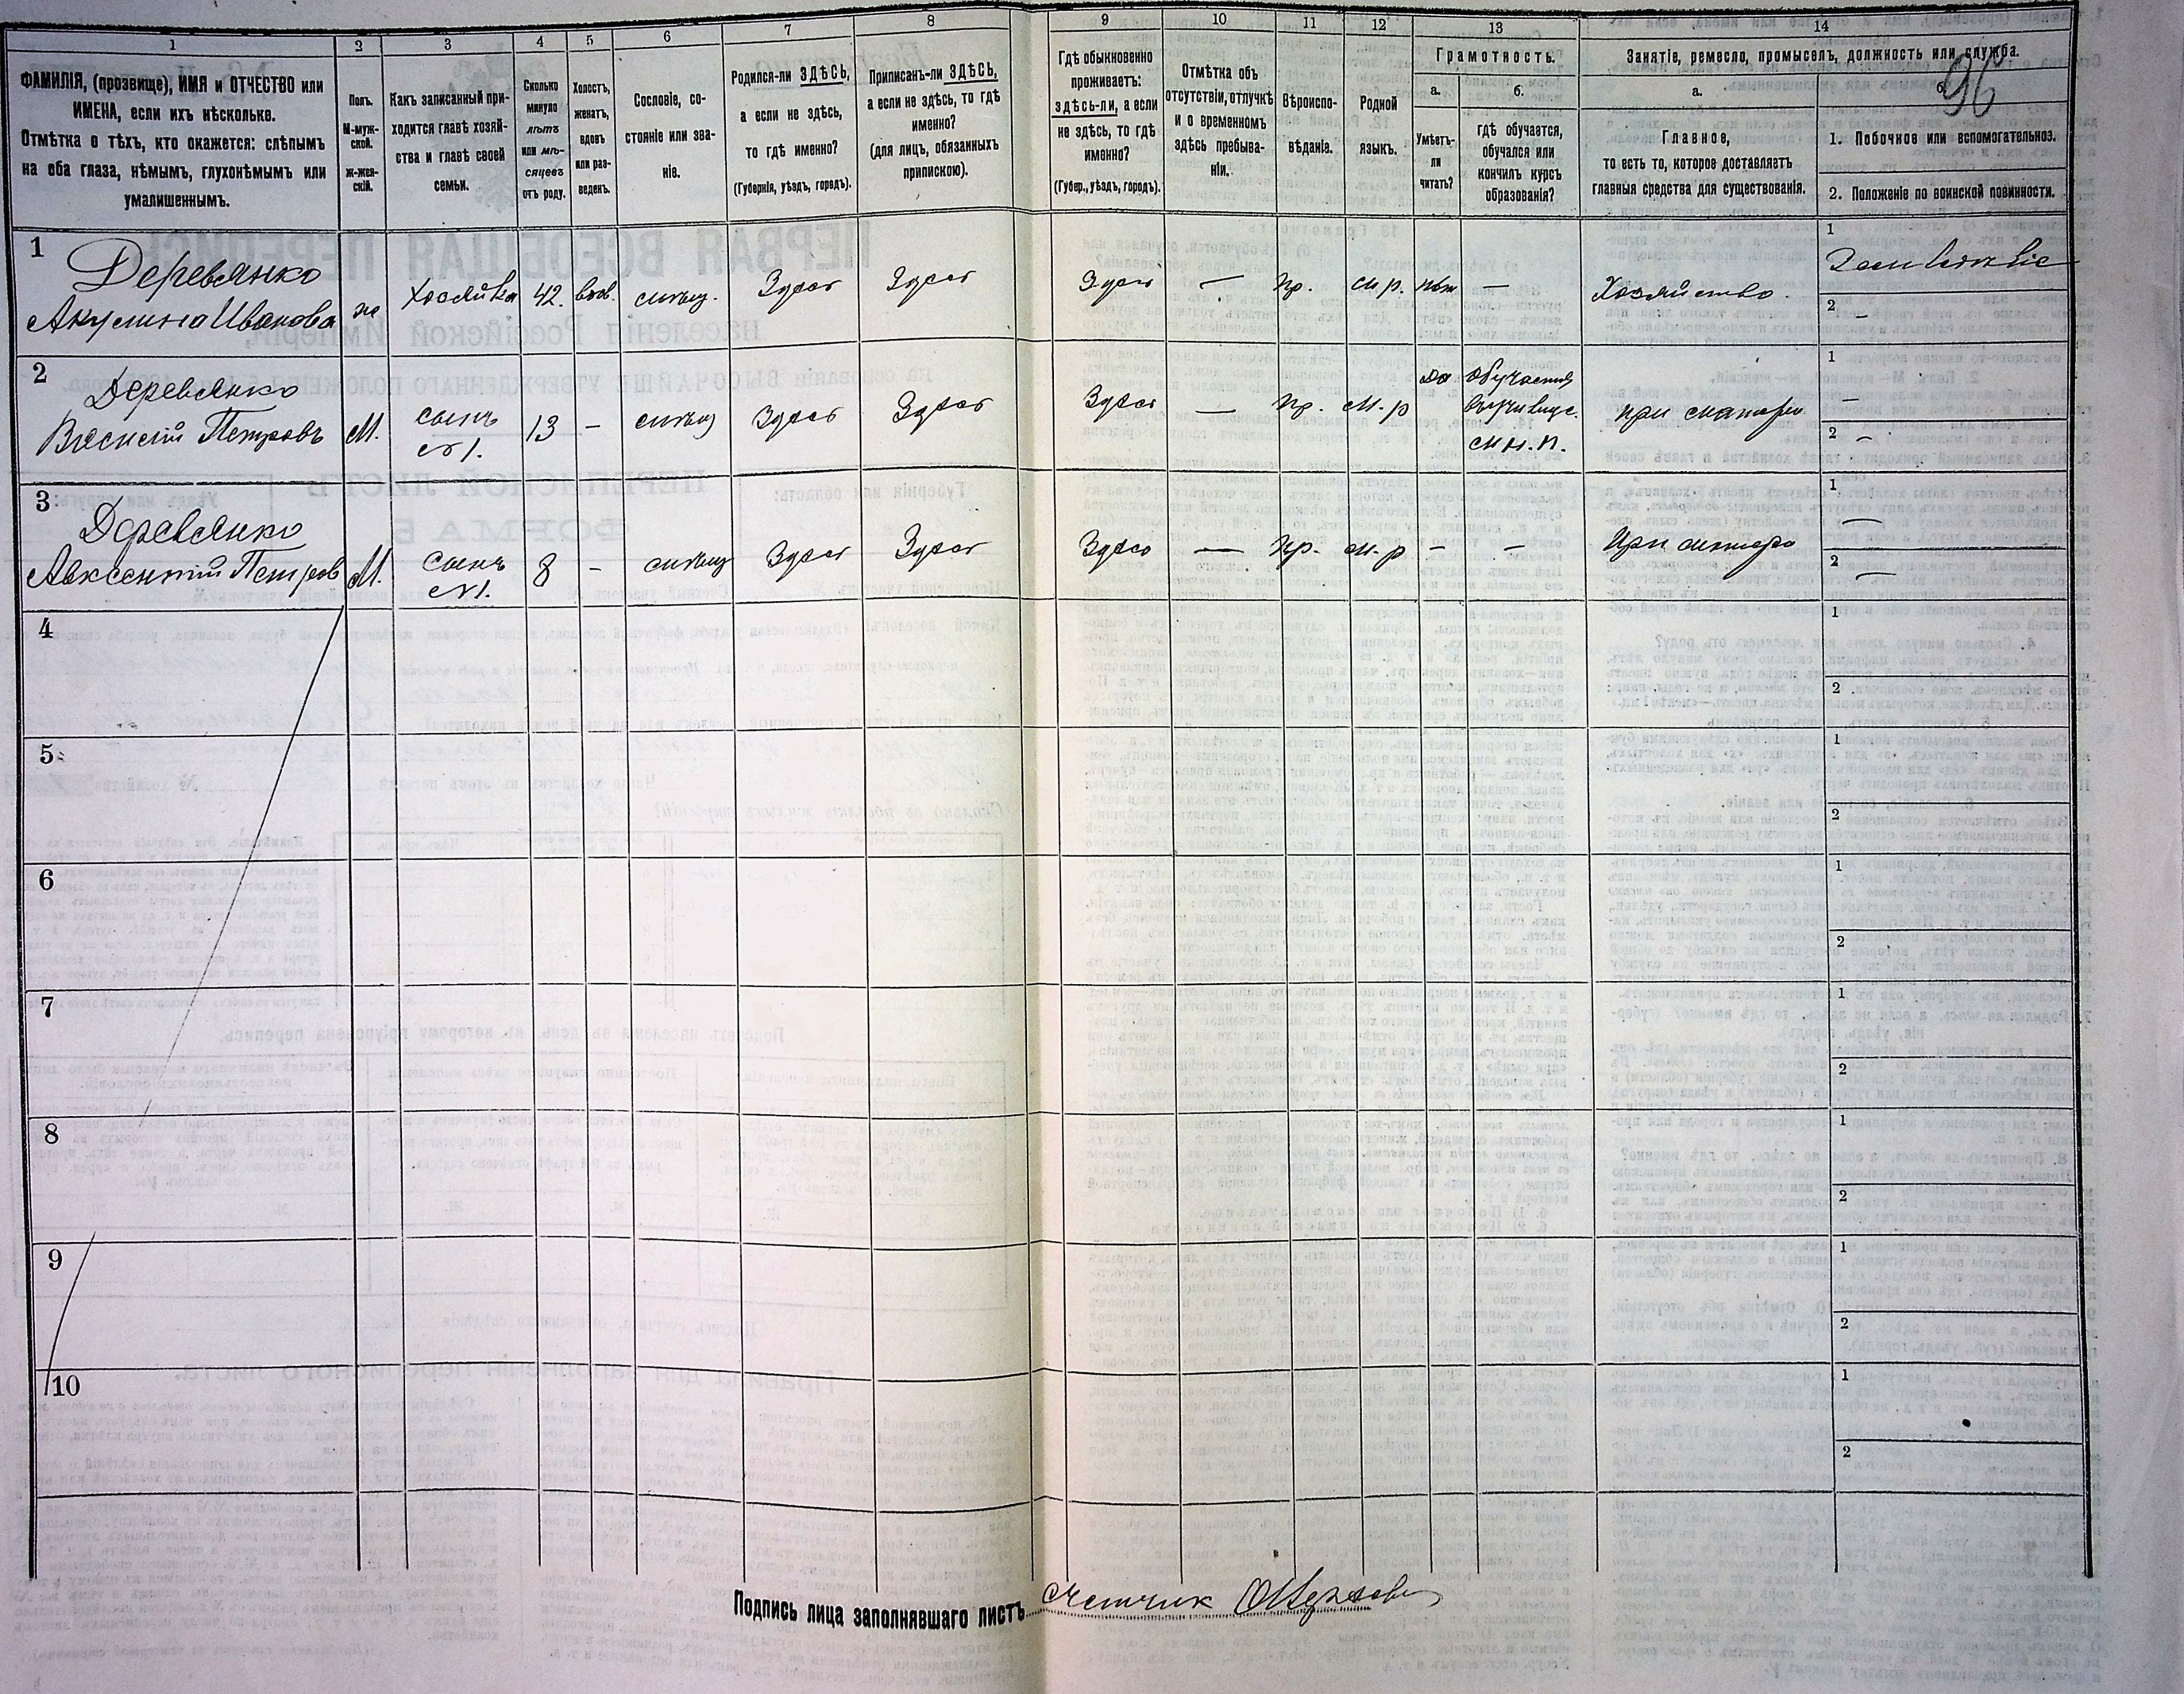 1
2
3
4
5
6
7
8
9
10
11
12
13
14
ФАМИЛІЯ, (прозвище), ИМЯ и ОТЧЕСТВО или
ИМЕНА, если ихъ нѣсколько.
Отмѣтка о тѣхъ, кто окажется: слѣпымъ
на оба глаза, нѣмымъ, глухонѣмымъ или
умалишеннымъ.
Полъ.
М-муж-
ской.
ж-жен-
скій.
Какъ записанный при-
ходится главѣ хозяй-
ства и главѣ своей
семьи.
Сколько
минуло
лѣтъ
или мѣ-
сяцевъ
отъ роду.
Холостъ,
женатъ,
вдовъ
или раз-
веденъ.
Сословіе, со-
стояніе или зва-
ніе.
Родился-ли ЗДѢСЬ,
а если не здѣсь,
то гдѣ именно?
(Губернія, уѣздъ, городъ).
Приписанъ-ли ЗДѢСЬ,
а если не здѣсь, то гдѣ
именно?
(для лицъ, обязанныхъ
припискою).
Гдѣ обыкновенно
проживаетъ:
здѣсь-ли, а если
не здѣсь, то гдѣ
именно?
(Губер., уѣздъ, городъ).
Отмѣтка объ
отсутствіи, отлучкѣ
и о временномъ
здѣсь пребыва-
ніи.
Вѣроиспо-
вѣданіе.
Родной
языкъ.
Грамотность.
а.
Умѣетъ-
ли
читать?
б.
гдѣ обучается,
обучался или
кончилъ курсъ
образованія?
Занятіе, ремесло, промыселъ, должность или служба.
96
а.
Главное,
то есть то, которое доставляетъ
главныя средства для существованія.
б.
1. Побочное или вспомогательное.
2. Положеніе по воинской повинности.
1
Деревянко
Акулина Иванова
ж
хозяйка
42.
вдов.
Здѣсь
Здѣсь
Здѣсь
—
пр.
м.р.
нѣт
—
Хозяйство.
1
2
—
2
Деревянко
Василій Петровъ
М.
сынъ
13
—
Здѣсь
Здѣсь
Здѣсь
—
пр.
м.р
да
при матери
1
—
2
—
3
Деревянко
Авксентій Петров
М.
сынъ
8
—
Здѣсь
Здѣсь
Здѣсь
—
пр.
м.р
—
—
при матери
1
—
2
—
4
1
2
5
1
2
6
1
2
7
1
2
8
1
2
9
1
2
10
1
2
Подпись лица заполнявшаго листъ
Счетчик